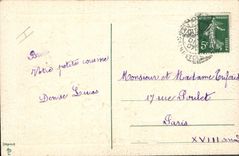 Votre petite cousine
Denise Lucas
Monsieur et Madame
17 rue Poulet
Paris
XVIII
5